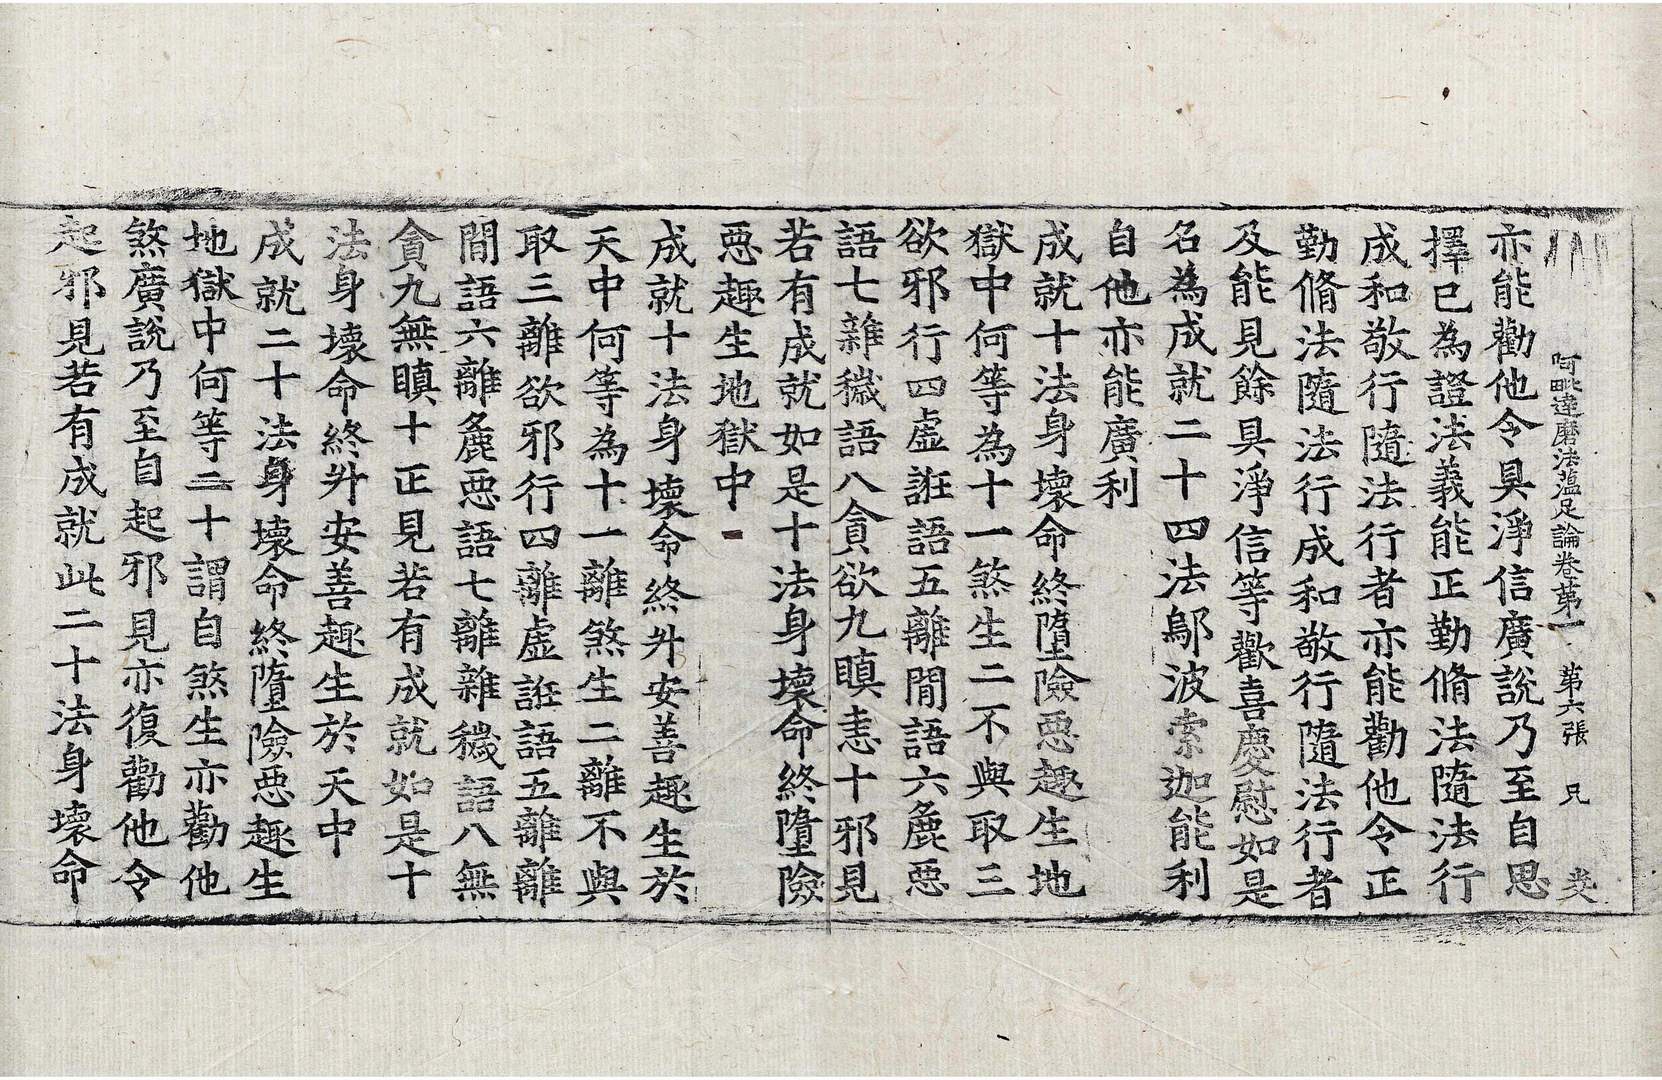 阿毗達磨法蘊足論卷第一 第六張 兄
亦能勸他令具淨信廣說乃至自思
擇已為證法義能正勤脩法隨法行
成和敬行隨法行者亦能勸他令正
勤脩法隨法行成和敬行隨法行者
及能見餘具淨信等歡喜慶慰如是
名為成就二十四法鄔波索迦能利
自他亦能廣利
成就十法身壞命終墮險惡趣生地
獄中何等為十一煞生二不與取三
欲邪行四虛誑語五離間語六麁惡
語七雜穢語八貪欲九瞋恚十邪見
若有成就如是十法身壞命終墮險
惡趣生地獄中
成就十法身壞命終升安善趣生於
天中何等為十一離煞生二離不與
取三離欲邪行四離虛誑語五離離
間語六離麁惡語七離雜穢語八無
貪九無瞋十正見若有成就如是十
法身壞命終升安善趣生於天中
成就二十法身壞命終墮險惡趣生
地獄中何等二十謂自煞生亦勸他
煞廣說乃至自起邪見亦復勸他令
起邪見若有成就此二十法身壞命